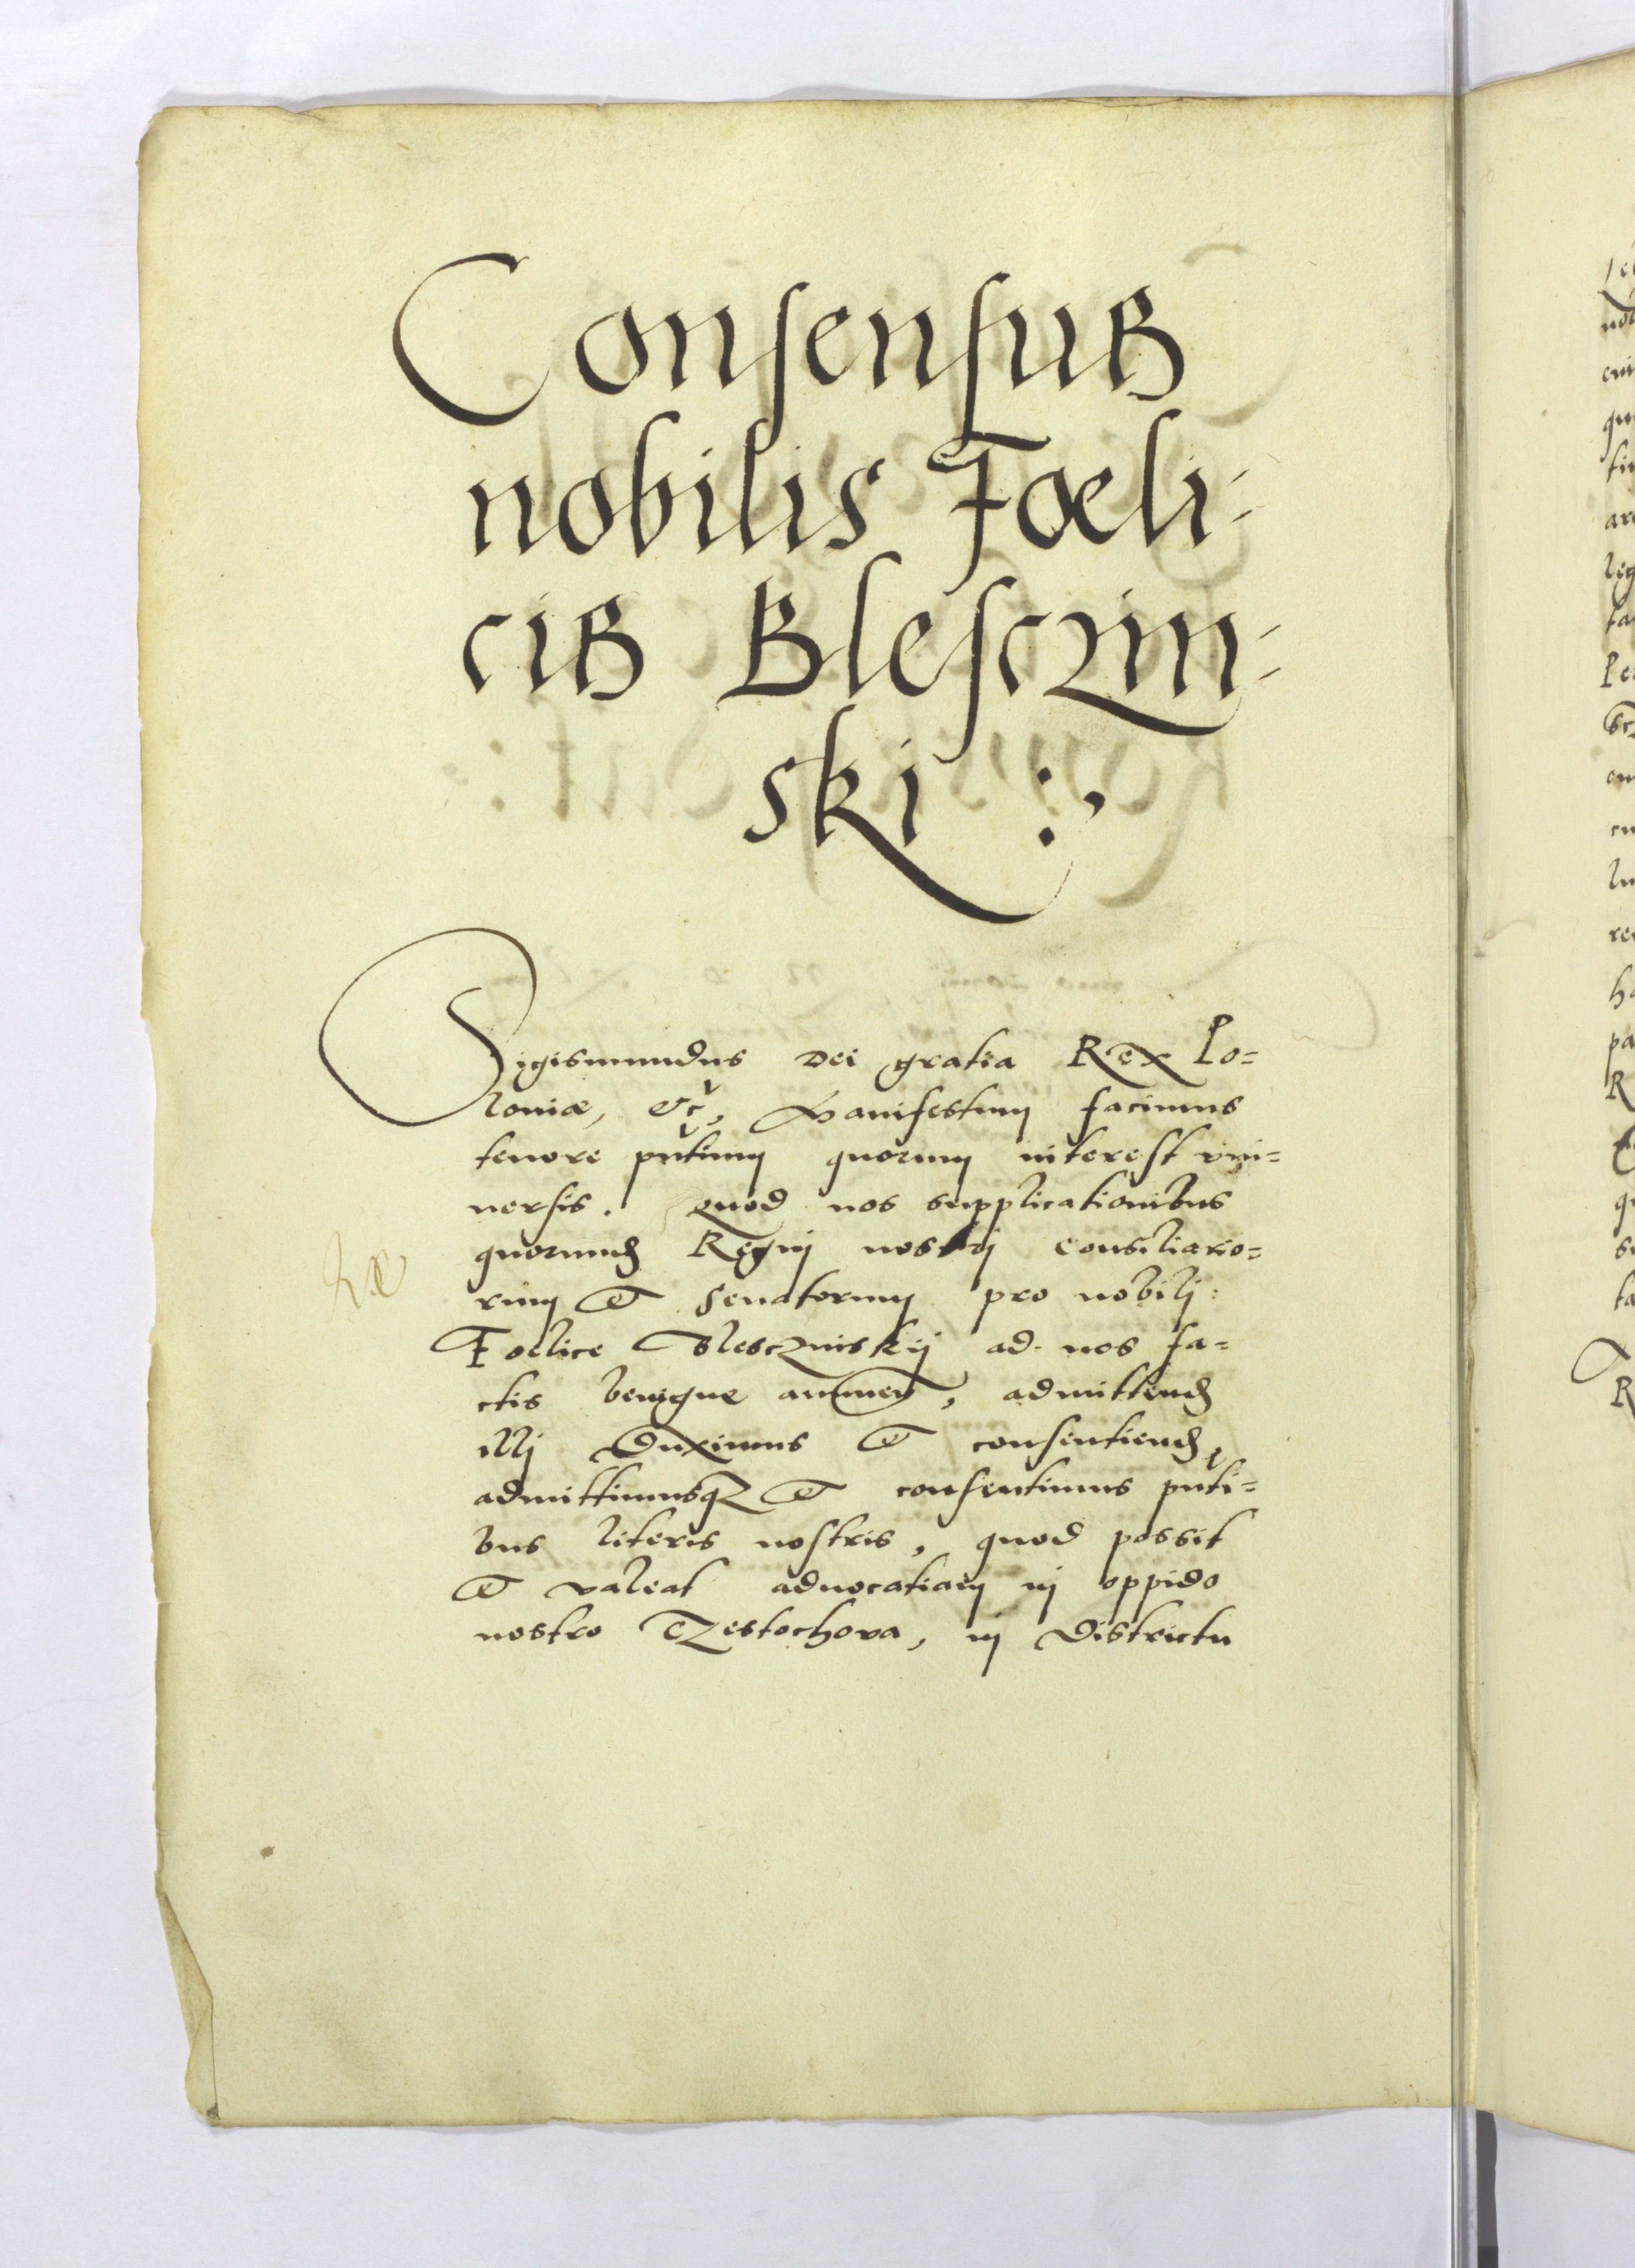 Consensus
nobilis Foeli-
cis Blesczin-
ski :,
Sigismundus Dei gratia Rex Po=
loniæ, &c, Manifestum facimus
tenore pntium quorum interest vni=
uersis. Quod nos supplicationibus
quorund Regni nostri Consiliario=
rum et Senatorum pro nobili:
Foelice Blesczinskij ad nos fa=
ctis benigne annuen, admittend
illi Duximus et consentiend,
admittimusq et consentimus pnti=
bus literis nostris, quod possit
et valeat aduocatiam in oppido
nostro Czestochova, in Districtu